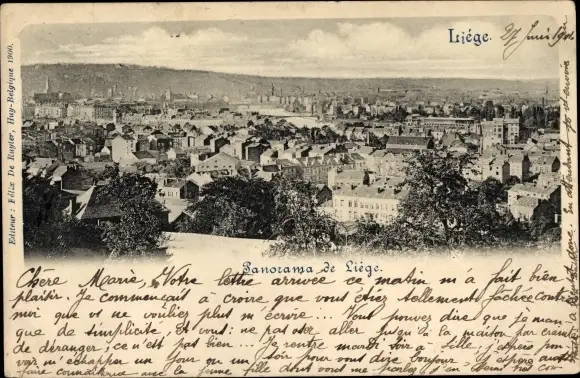 Liége.
27 Juin 1901
Editeur : Félix De Ruyter, Huy-Belgique 1900.
Panorama de Liége.
Chère Marie, Votre lettre arrivée ce matin m'a fait bien
plaisir. Je commençais à croire que vous étiez tellement fâchée contre
moi que vs ne vouliez plus m'écrire... Vous pouvez dire que je man
que de simplicité, et vous: ne pas oser aller jusqu'à la maison par crainte
de déranger; ce n'est pas bien... Je rentre mardi soir à , j'espère pou
voir m'échapper un jour ou un soir pour vous dire bonjour. J'espère aussi
faire connaissance avec la jeune fille dont vous me parlez
En attendant